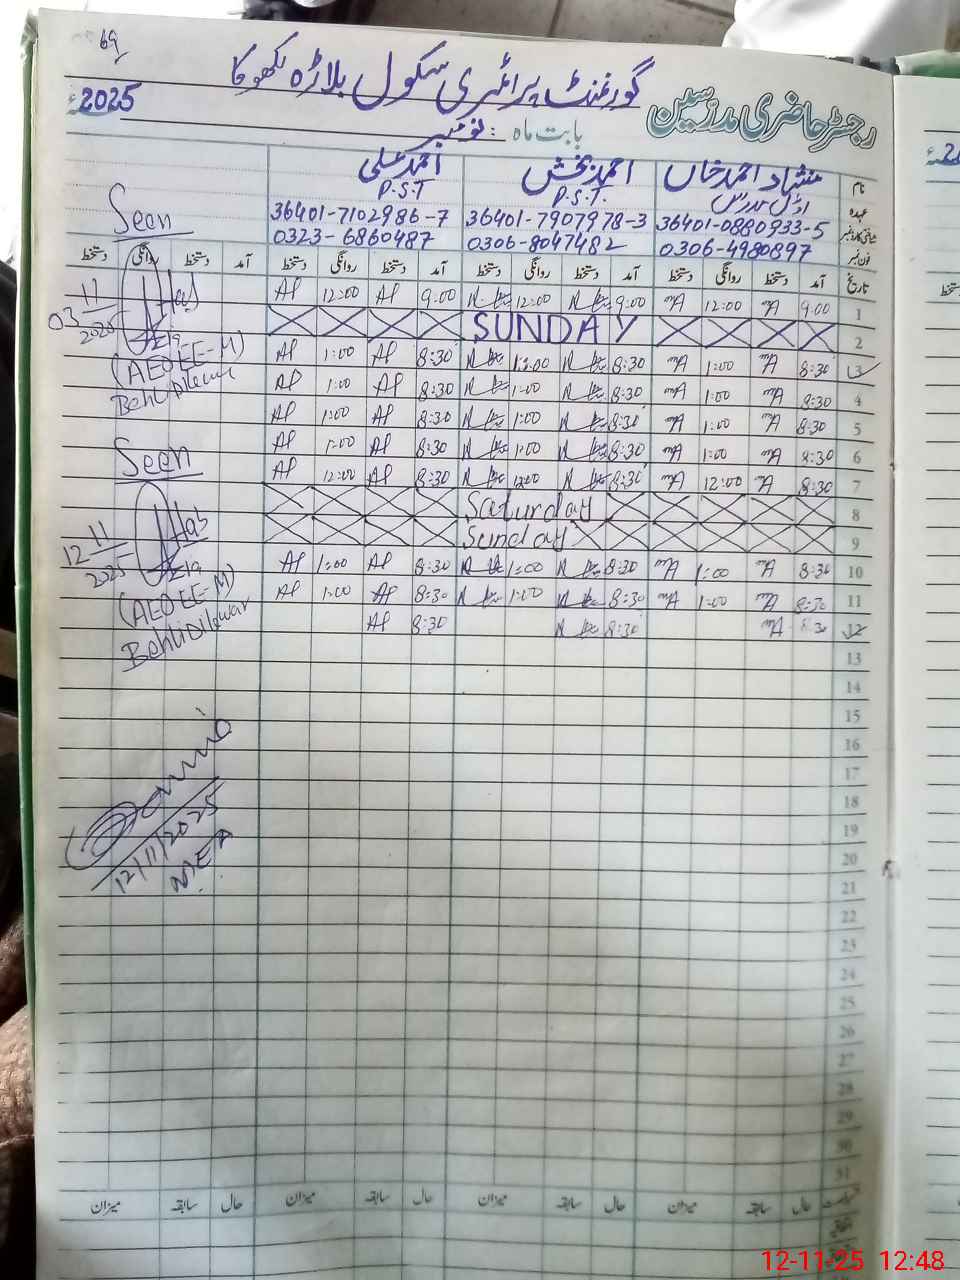 69
گورنمنٹ پرائمری سکول بلاڑہ لکھوکا
رجسٹر حاضری مدرسین
2025ء
بابت ماہ : نومبر
نام منشاد احمد خاں احمد بخش احمد علی
عہدہ P.S.T. P.S.T
شناختی کارڈ نمبر 36401-0880933-5 36401-7907978-3 36401-7102986-7
فون نمبر 0306-4980897 0306-8047482 0323-6860487
تاریخ آمد دستخط روانگی دستخط آمد دستخط روانگی دستخط آمد دستخط روانگی دستخط آمد دستخط روانگی دستخط
1 9.00 12:00 9:00 12:00 9.00 12:00
2 SUNDAY
3 8:30 1:00 8:30 1:00 8:30 1:00
4 8:30 1:00 8:30 1:00 8:30 1:00
5 8:30 1:00 8:30 1:00 8:30 1:00
6 8:30 1:00 8:30 1:00 8:30 1:00
7 8:30 12:00 8:30 12:00 8:30 12:00
8 Saturday
9 Sunday
10 8:30 1:00 8:30 1:00 8:30 1:00
11 8:30 1:00 8:30 1:00 8:30 1:00
12 8:30 8:30 8:30
13
14
15
16
17
18
19
20
21
22
23
24
25
26
27
28
29
30
31
Seen
03 11 2025
(AEO EE-M)
Behli Dilawar
Seen
12 11 2025
(AEO EE-M)
Behli Dilawar
12/11/2025
MEA
حال سابقہ میزان حال سابقہ میزان حال سابقہ میزان حال سابقہ میزان
12-11-25 12:48